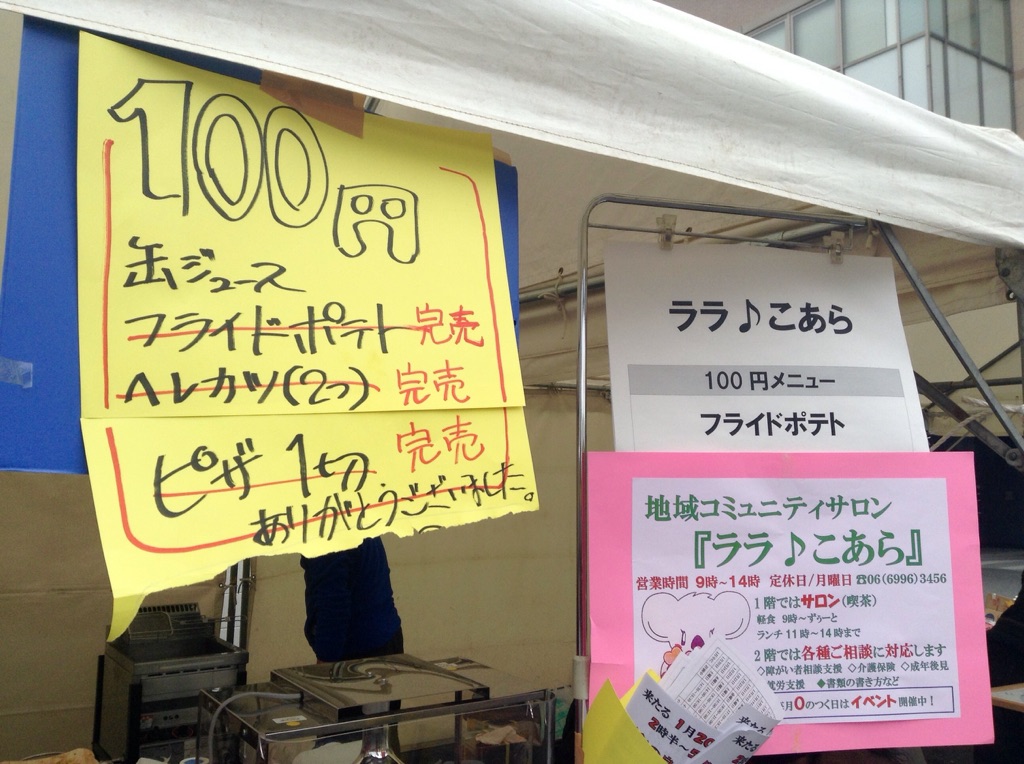 100円
缶ジュース
フライドポテト 完売
ヘレカツ(2つ) 完売
ピザ 1切 完売
ありがとうございました。
ララ♪こあら
100円メニュー
フライドポテト
地域コミュニティサロン
『ララ♪こあら』
営業時間 9時~14時 定休日/月曜日 ☎06(6996)3456
1階ではサロン(喫茶)
軽食 9時~ずぅーと
ランチ 11時~14時まで
2階では各種ご相談に対応します
◇障がい者相談支援 ◇介護保険 ◇成年後見
就労支援 ◆書類の書き方など
月0のつく日はイベント開催中!
来たる 1月20
2時半~
来たる